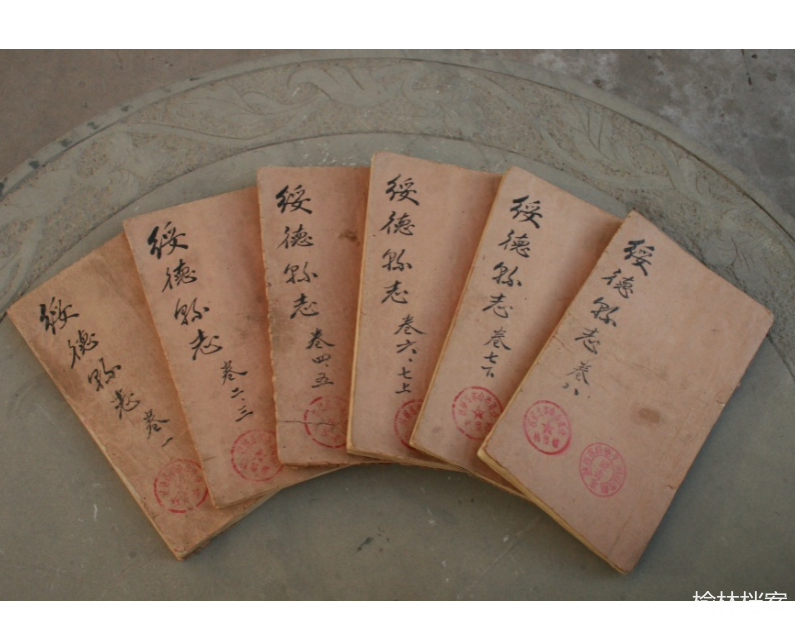 绥德縣志 卷一
绥德縣志 卷二·三
绥德縣志 卷四·五
绥德縣志 卷六·七上
绥德縣志 卷七下
绥德縣志 卷八
榆林档案